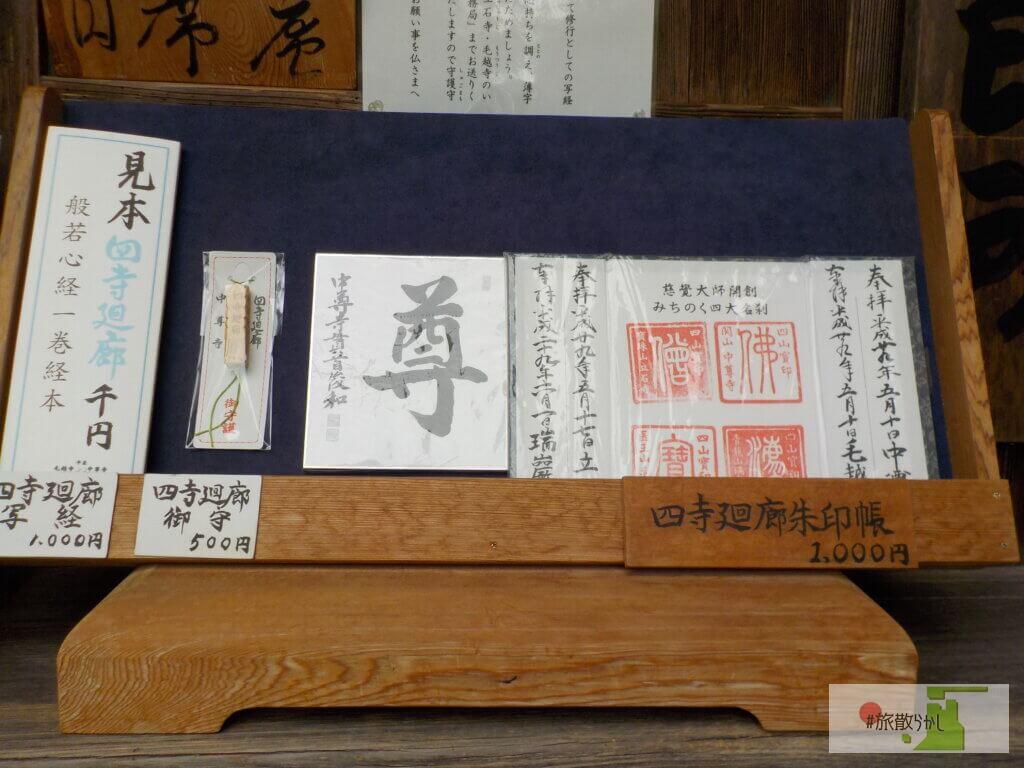 て修行としての写経
持ちを調え、薄字
ためましょう。
務局」までお送りく
立石寺・毛越寺のい
たしますので守護守
お願い事を仏さまへ
見本
四寺廻廊
千円
般若心経一巻経本
四寺廻廊
中尊寺
御守護
尊
中尊寺貫首
慈覺大師開創
みちのく四大名刹
四山寳印
関山中尊寺
佛
僧
四山寳印
寳
奉拝 平成廿九年五月十日中尊
奉拝 平成廿九年五月十日毛越
奉拝 平成廿九年五月十七日立
奉拝 平成二十九年六月一日瑞巌
四寺廻廊
写経
1,000円
四寺廻廊
御守
500円
四寺廻廊朱印帳
1,000円
#旅散らかし